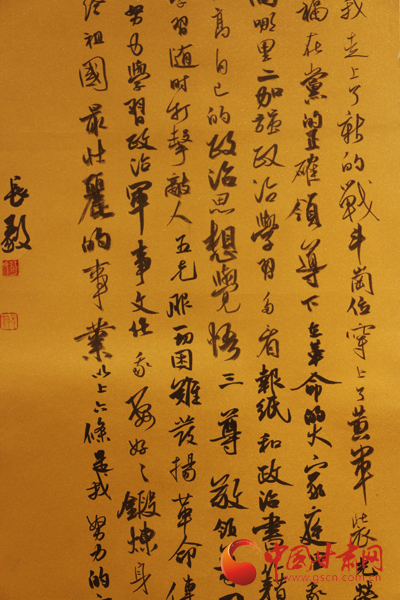 我走上了新的戰斗崗位穿上了黄軍裝光榮
福在黨的正確領導下在革命的大家庭
向哪里二加强政治學習多看報紙和政治書籍
高自己的政治思想覺悟三尊敬領
學習随时打擊敵人五克服一切困難發揚革命傳
努力學習政治軍事文化我要好好鍛煉身
给祖國最壯麗的事業以上六條是我努力的
長毅
中国甘肃网
www.gscn.com.cn